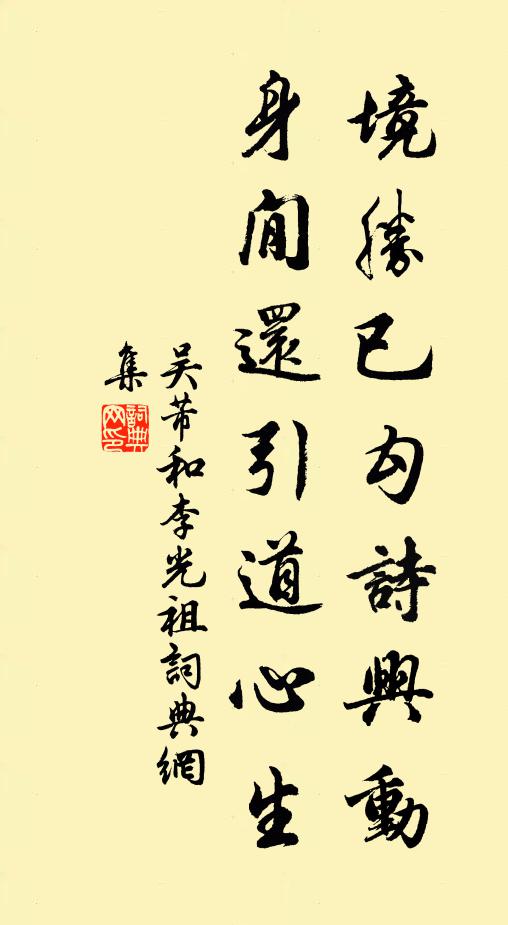 境勝已勾詩興動
身閒還引道心生
吴芾和李光祖詞典網
集
詞典
网印